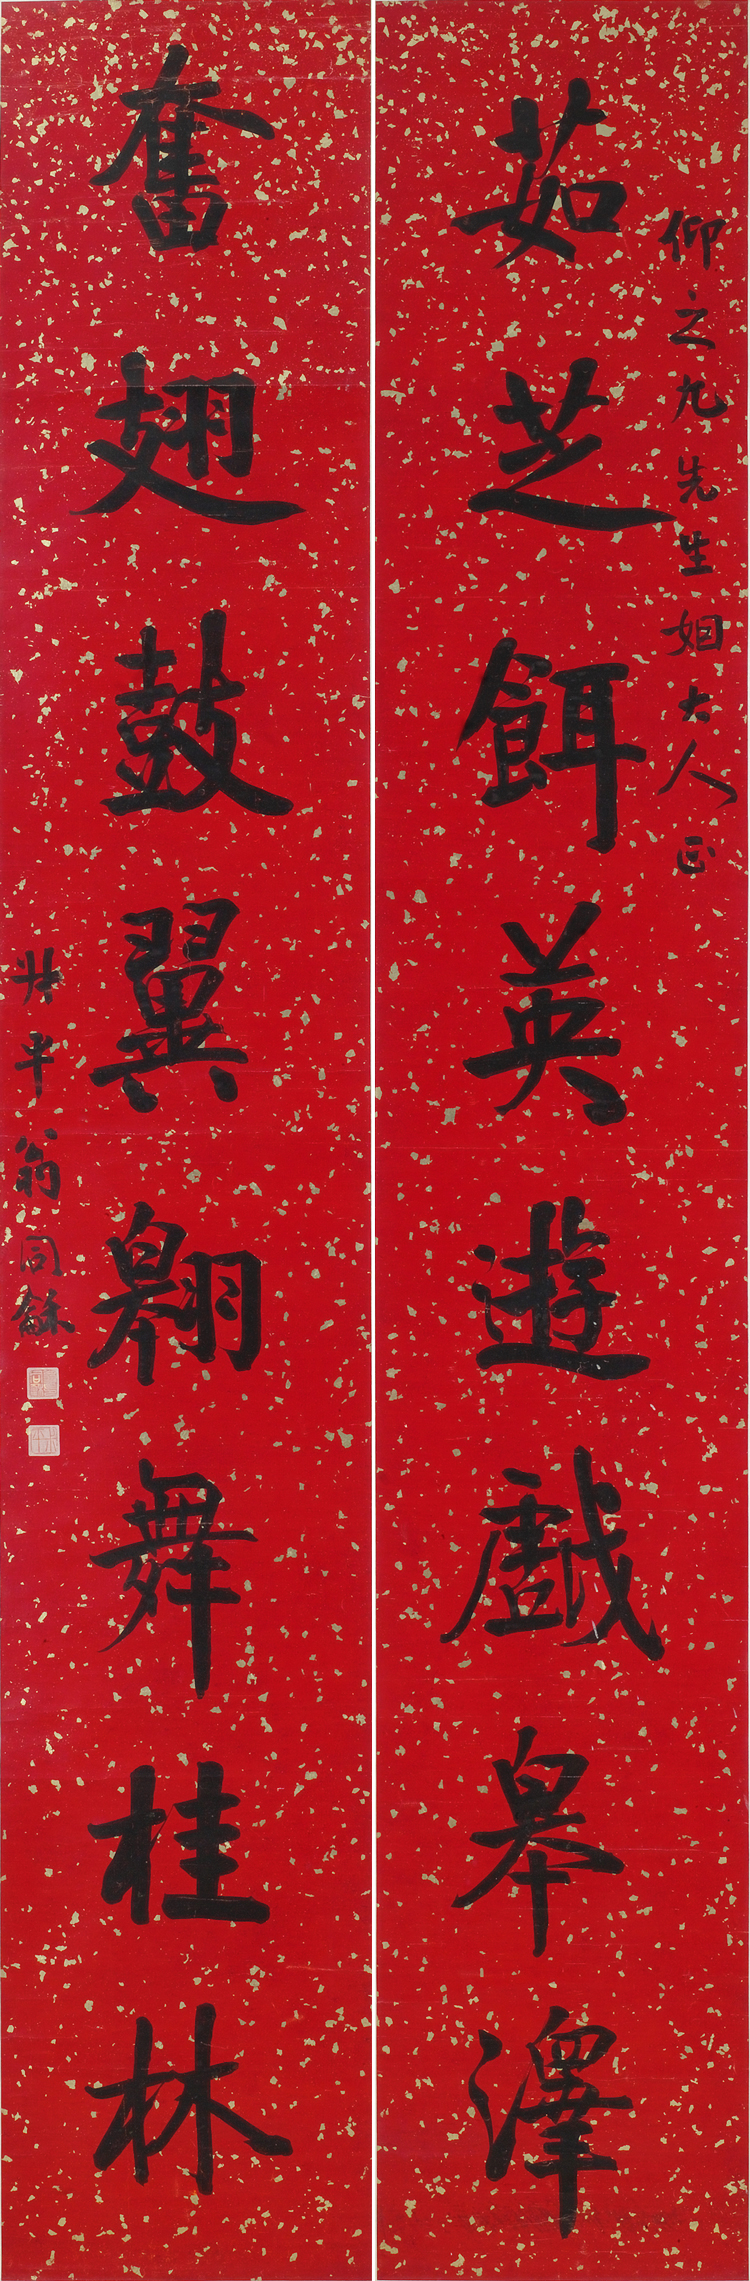 仰之九先生姻大人正
茹芝餌英遊戲皋澤
奮翅鼓翼翱舞桂林
叔平翁同龢